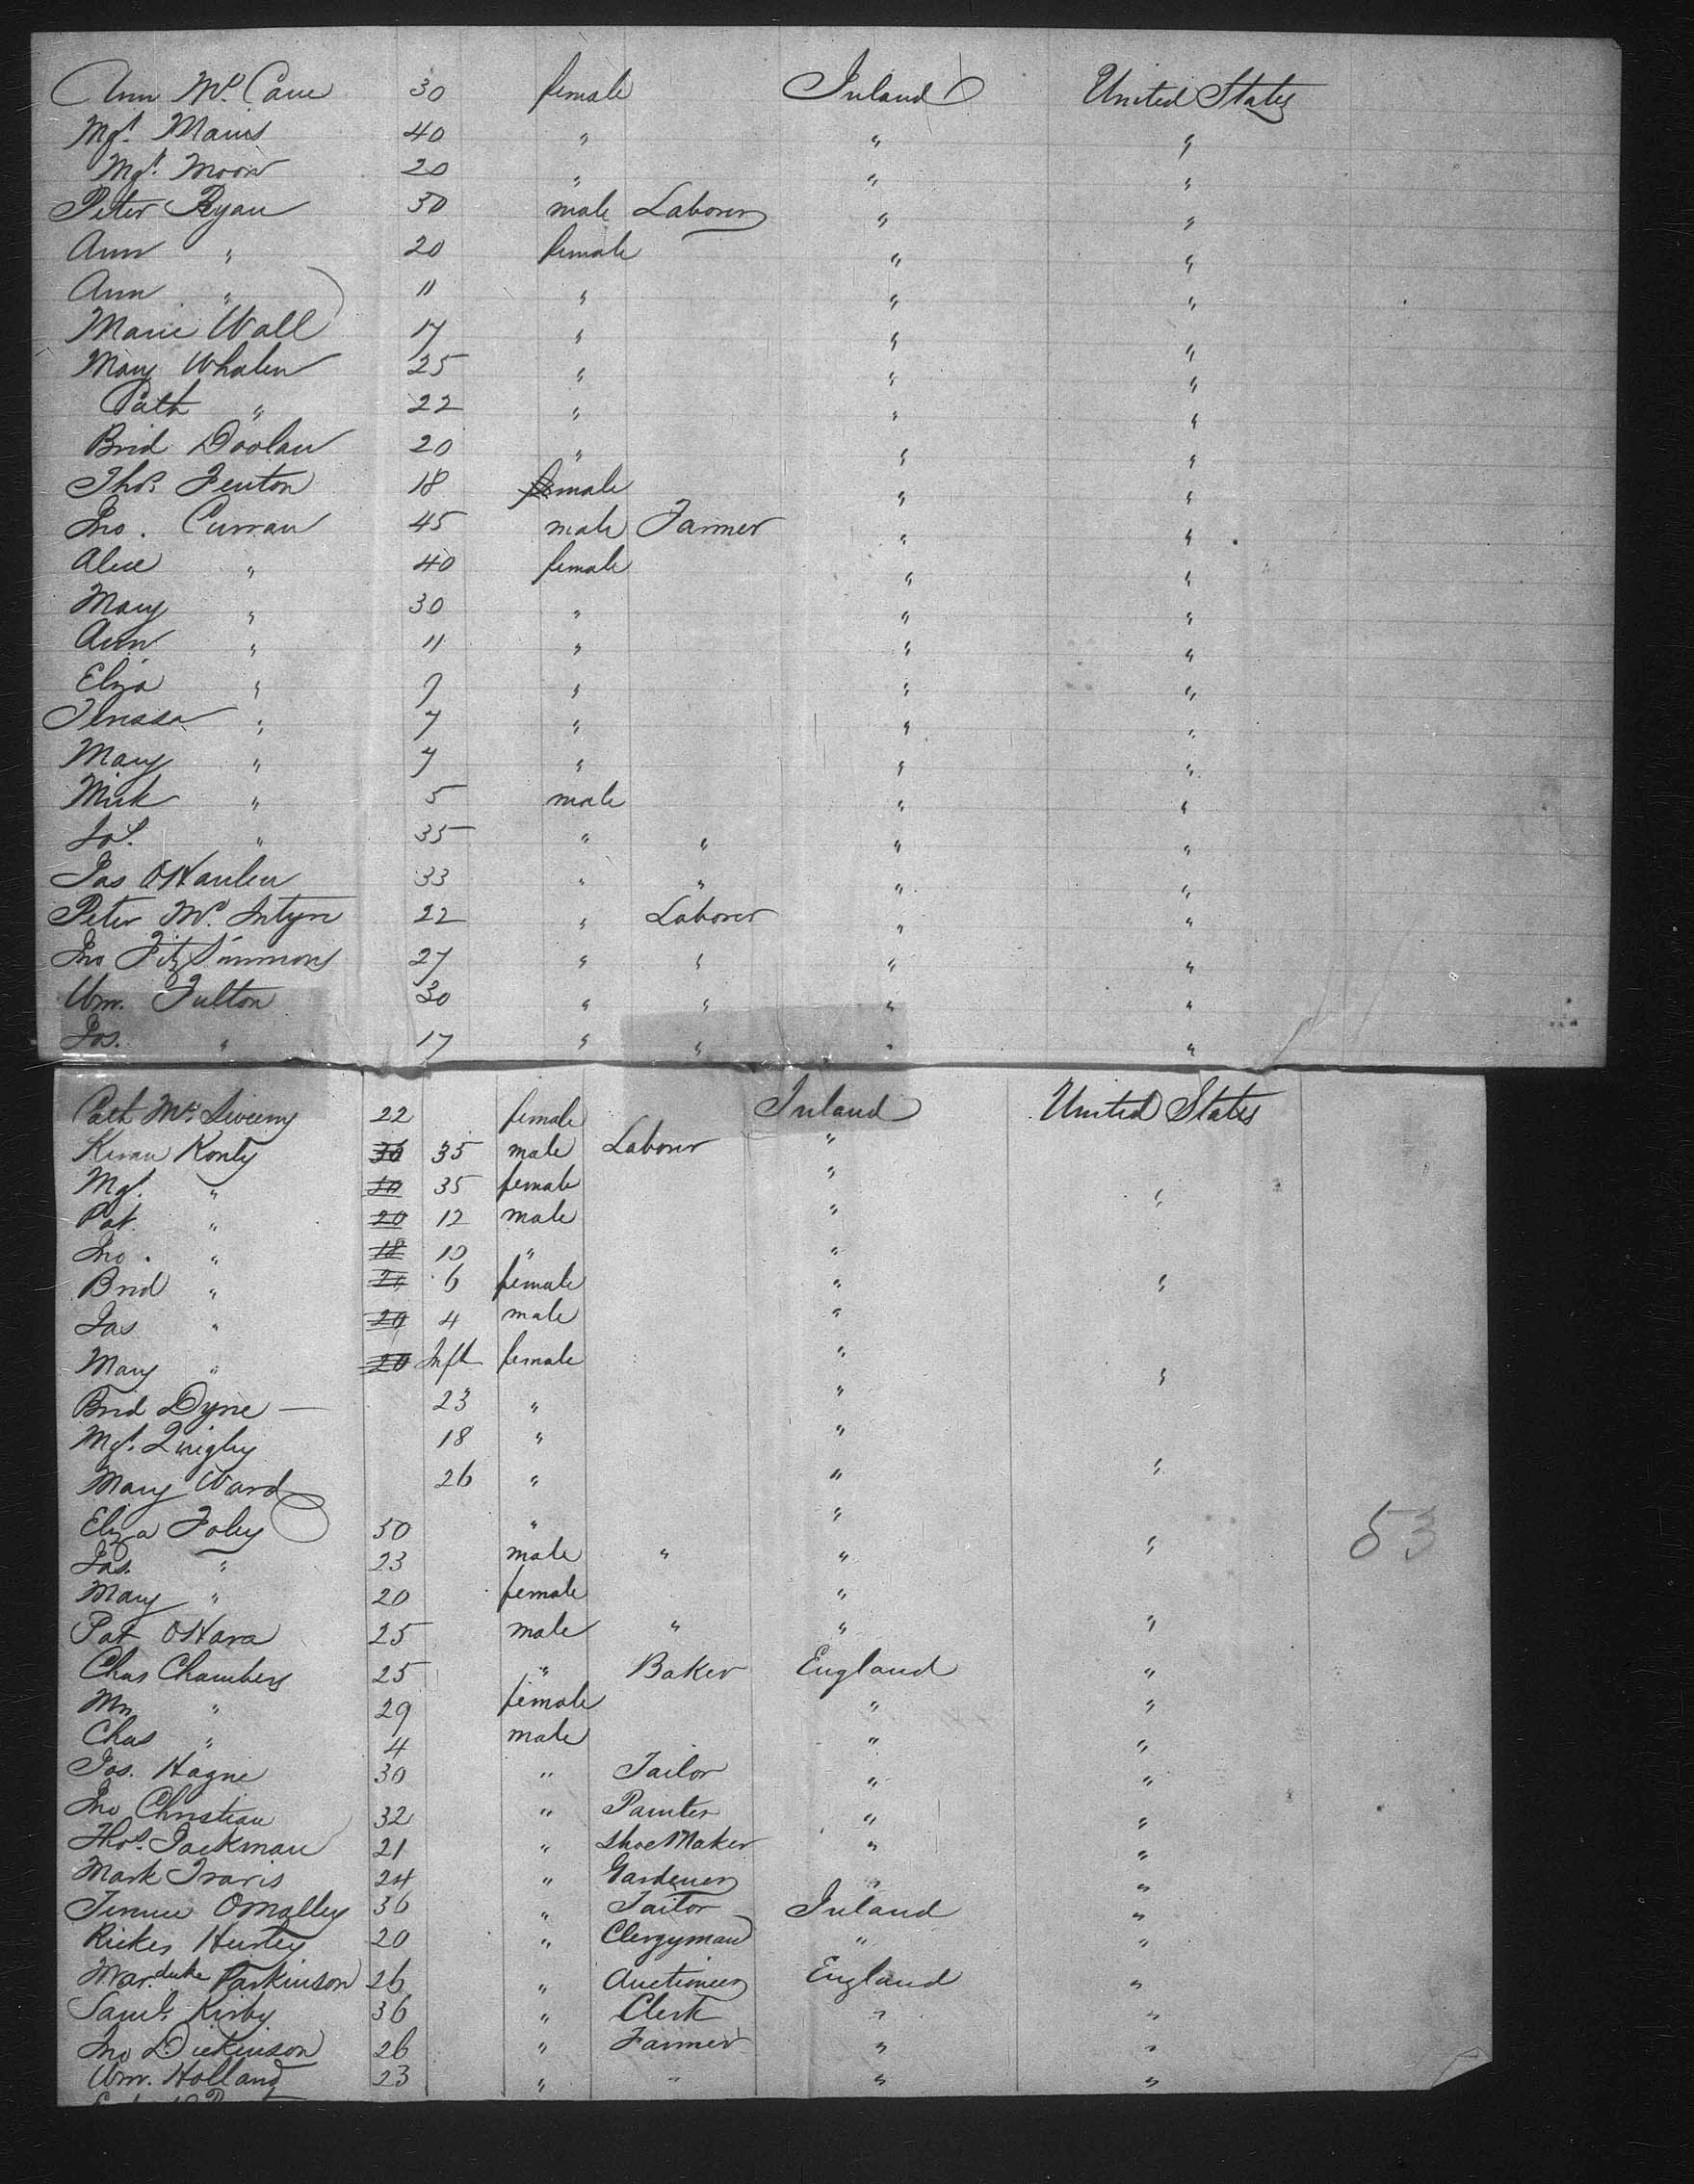 Ann Mc. Cane 30 female Ireland United States
Mgt. Mains 40 " " "
Mgt. Moore 20 " " "
Peter Ryan 30 male Laborer " "
Ann " 20 female " "
Ann " 11 " " "
Marie Wall 17 " " "
Mary Whalen 25 " " "
Cath " 22 " " "
Brid Doolan 20 " " "
Thos. Fenton 18 male " "
Jno. Curran 45 male Farmer " "
Alice " 40 female " "
Mary " 30 " " "
Ann " 11 " " "
Eliza " 9 " " "
Teressa " 7 " " "
Mary " 7 " " "
Mick " 5 male " "
" 35 " " " "
Jas O'Hanlen 33 " " " "
Peter Mc. Intyre 22 " Laborer " "
Jno Fitz Simmons 27 " " " "
Wm. Fulton 30 " " " "
Jos. " 17 " " " "
Cath Mc Sweeny 22 female Ireland United States
Kieran 30 35 male Laborer "
Mgt. " 30 35 female " "
Pat. " 20 12 male "
Jno. " 18 10 " "
Brid " 6 female " "
Jas " 20 4 male "
Mary " 20 Inft female " "
Brid Dyne — 23 " "
Mgt. Quigley 18 " "
Mary Ward 26 " " "
Eliza Foley 50 " "
Jas. " 23 male " " "
Mary " 20 female "
Pat O'Hara 25 male " " "
Chas Chambers 25 " Baker England "
Mrs " 29 female " "
Chas " 4 male " "
Jos. Hagne 30 " Tailor " "
Jno Christian 32 " Painter " "
Thos. Jackman 21 " Shoe Maker " "
Mark Travis 24 " Gardener " "
O'Malley 36 " Tailor Ireland "
20 " Clergyman " "
Marduke Parkinson 26 " Auctioneer England "
Saml. Kirby 36 " Clerk " "
Jno Dickinson 26 " Farmer " "
Wm. Holland 23 " " " "
53